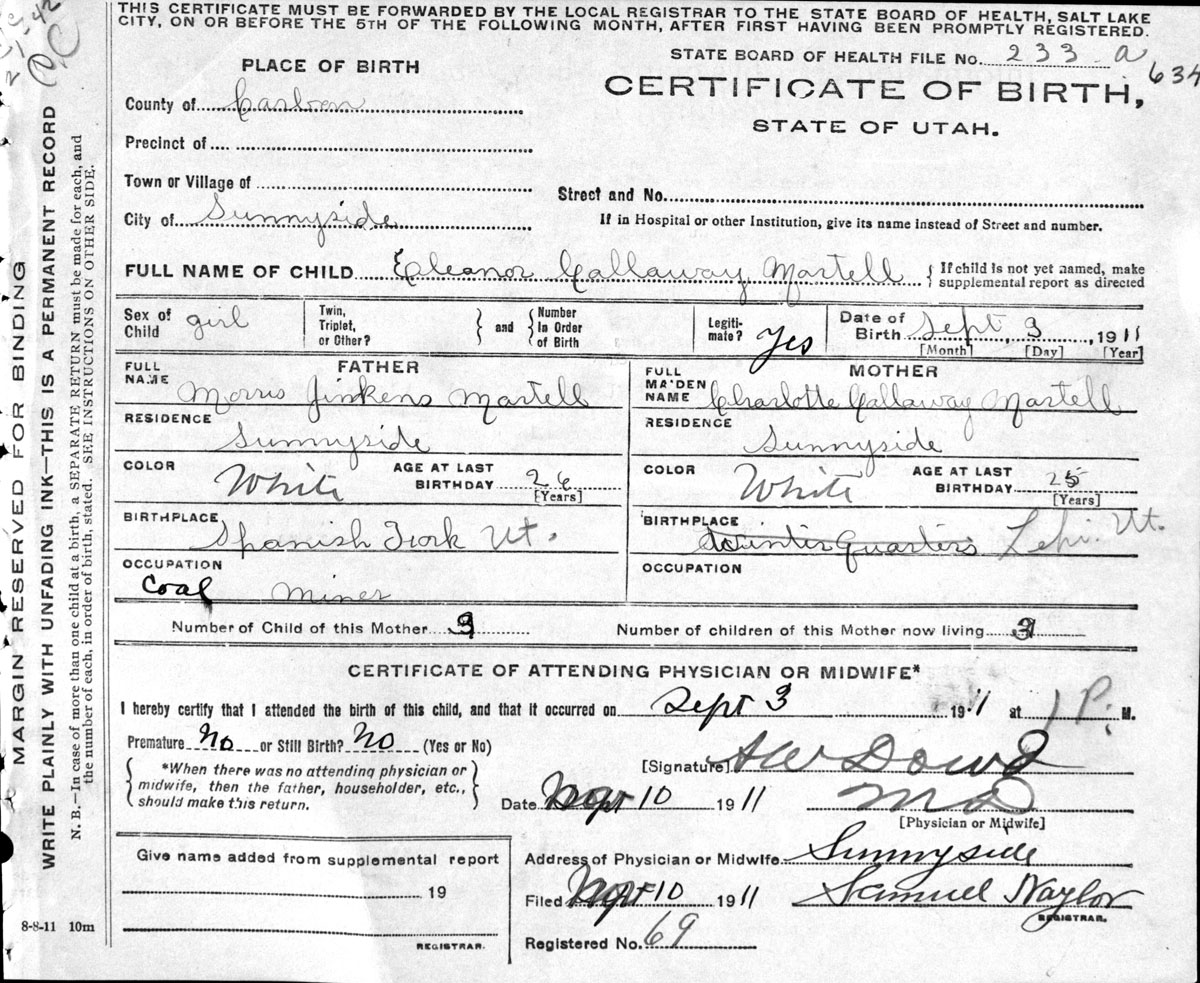 THIS CERTIFICATE MUST BE FORWARDED BY THE LOCAL REGISTRAR TO THE STATE BOARD OF HEALTH, SALT LAKE
CITY, ON OR BEFORE THE 5TH OF THE FOLLOWING MONTH, AFTER FIRST HAVING BEEN PROMPTLY REGISTERED.
STATE BOARD OF HEALTH FILE No. 233 a
634
PLACE OF BIRTH
CERTIFICATE OF BIRTH,
STATE OF UTAH.
County of Carbon
Precinct of
Town or Village of
Street and No.
City of Sunnyside
If in Hospital or other Institution, give its name instead of Street and number.
FULL NAME OF CHILD Eleanor Callaway Martell { If child is not yet named, make
supplemental report as directed
Sex of Child girl Twin, Triplet, or Other? } and { Number In Order of Birth Legiti-mate? Yes Date of Birth Sept, 3, 1911
[Month] [Day] [Year]
FATHER
MOTHER
FULL NAME Morris Jinkens Martell
FULL MAIDEN NAME Charlotte Callaway Martell
RESIDENCE Sunnyside
RESIDENCE Sunnyside
COLOR White AGE AT LAST BIRTHDAY 26 [Years]
COLOR White AGE AT LAST BIRTHDAY 25 [Years]
BIRTHPLACE Spanish Fork Ut.
BIRTHPLACE Winter Quarters Lehi Ut.
OCCUPATION Coal Miner
OCCUPATION
Number of Child of this Mother 3
Number of children of this Mother now living 3
CERTIFICATE OF ATTENDING PHYSICIAN OR MIDWIFE*
I hereby certify that I attended the birth of this child, and that it occurred on Sept 3 1911 at 1 P. M.
Premature No or Still Birth? No (Yes or No)
[Signature] A W Dowd
{ *When there was no attending physician or
midwife, then the father, householder, etc.,
should make this return. }
Date 10 1911 M D
[Physician or Midwife]
Give name added from supplemental report
19
REGISTRAR.
Address of Physician or Midwife Sunnyside
Filed 10 1911 Samuel Naylor
REGISTRAR.
Registered No. 69
8-8-11 10m
MARGIN RESERVED FOR BINDING
WRITE PLAINLY WITH UNFADING INK—THIS IS A PERMANENT RECORD
N. B.—In case of more than one child at a birth, a SEPARATE RETURN must be made for each, and
the number of each, in order of birth, stated. SEE INSTRUCTIONS ON OTHER SIDE.